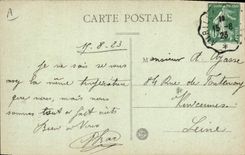 A
CARTE POSTALE
17-8-23
Je ne sais si vous
avez la même température
que nous, mais nous
sommes tout à fait cuits
Bien à vous
Monsieur A. Ayasse
84 Rue de Fontenay
Vincennes
Seine